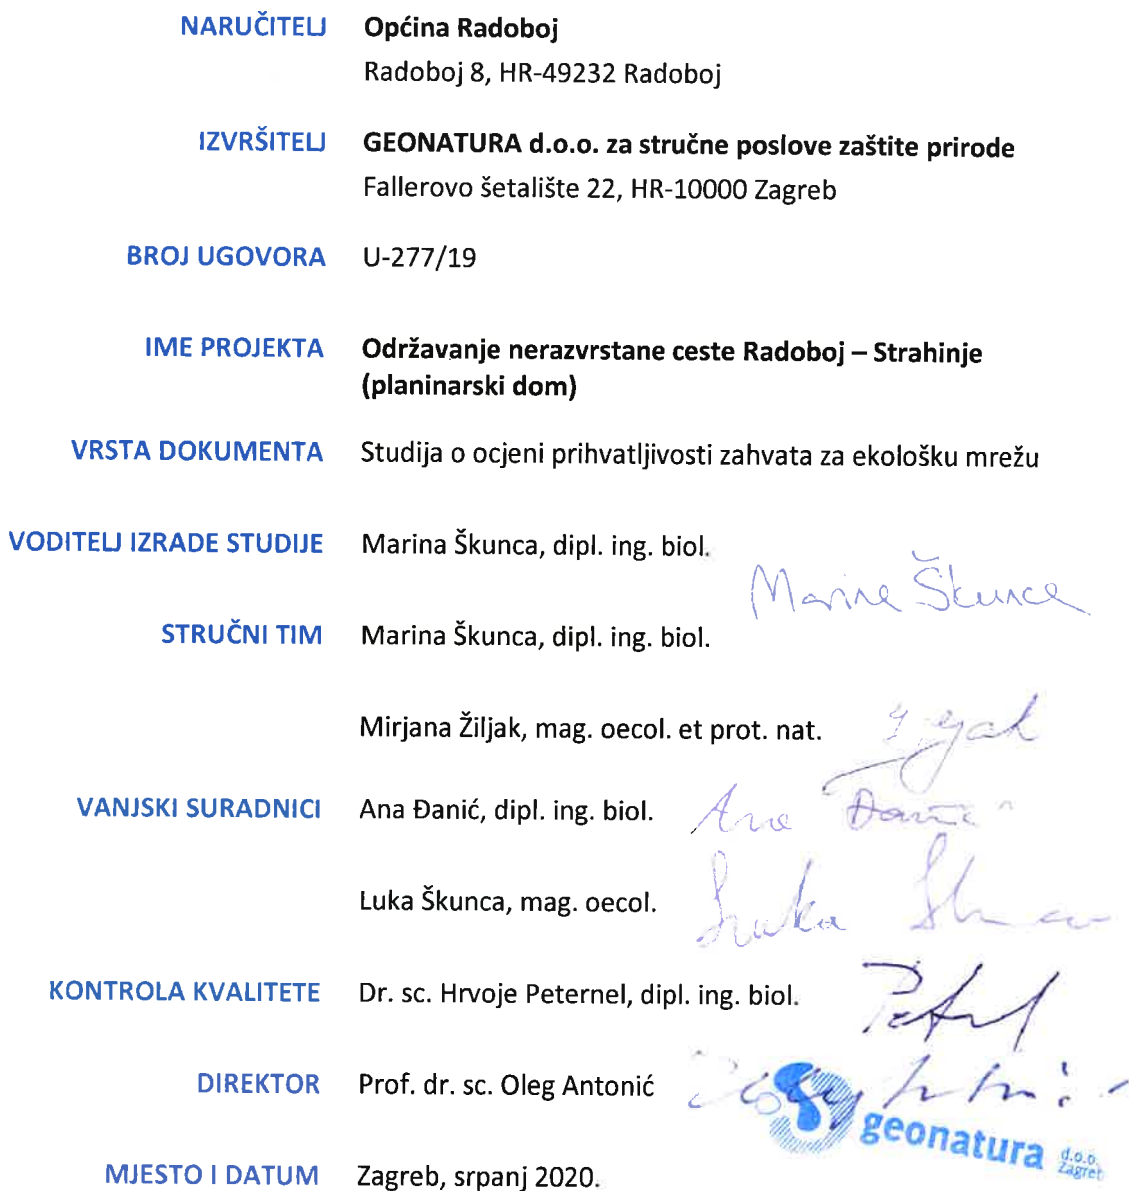 NARUČITELJ Općina Radoboj
Radoboj 8, HR-49232 Radoboj
IZVRŠITELJ GEONATURA d.o.o. za stručne poslove zaštite prirode
Fallerovo šetalište 22, HR-10000 Zagreb
BROJ UGOVORA U-277/19
IME PROJEKTA Održavanje nerazvrstane ceste Radoboj – Strahinje
(planinarski dom)
VRSTA DOKUMENTA Studija o ocjeni prihvatljivosti zahvata za ekološku mrežu
VODITELJ IZRADE STUDIJE Marina Škunca, dipl. ing. biol.
Marina Škunca
STRUČNI TIM Marina Škunca, dipl. ing. biol.
Mirjana Žiljak, mag. oecol. et prot. nat.
VANJSKI SURADNICI Ana Đanić, dipl. ing. biol. Ana Đanić
Luka Škunca, mag. oecol. Luka
KONTROLA KVALITETE Dr. sc. Hrvoje Peternel, dipl. ing. biol.
DIREKTOR Prof. dr. sc. Oleg Antonić
geonatura d.o.o. Zagreb
MJESTO I DATUM Zagreb, srpanj 2020.